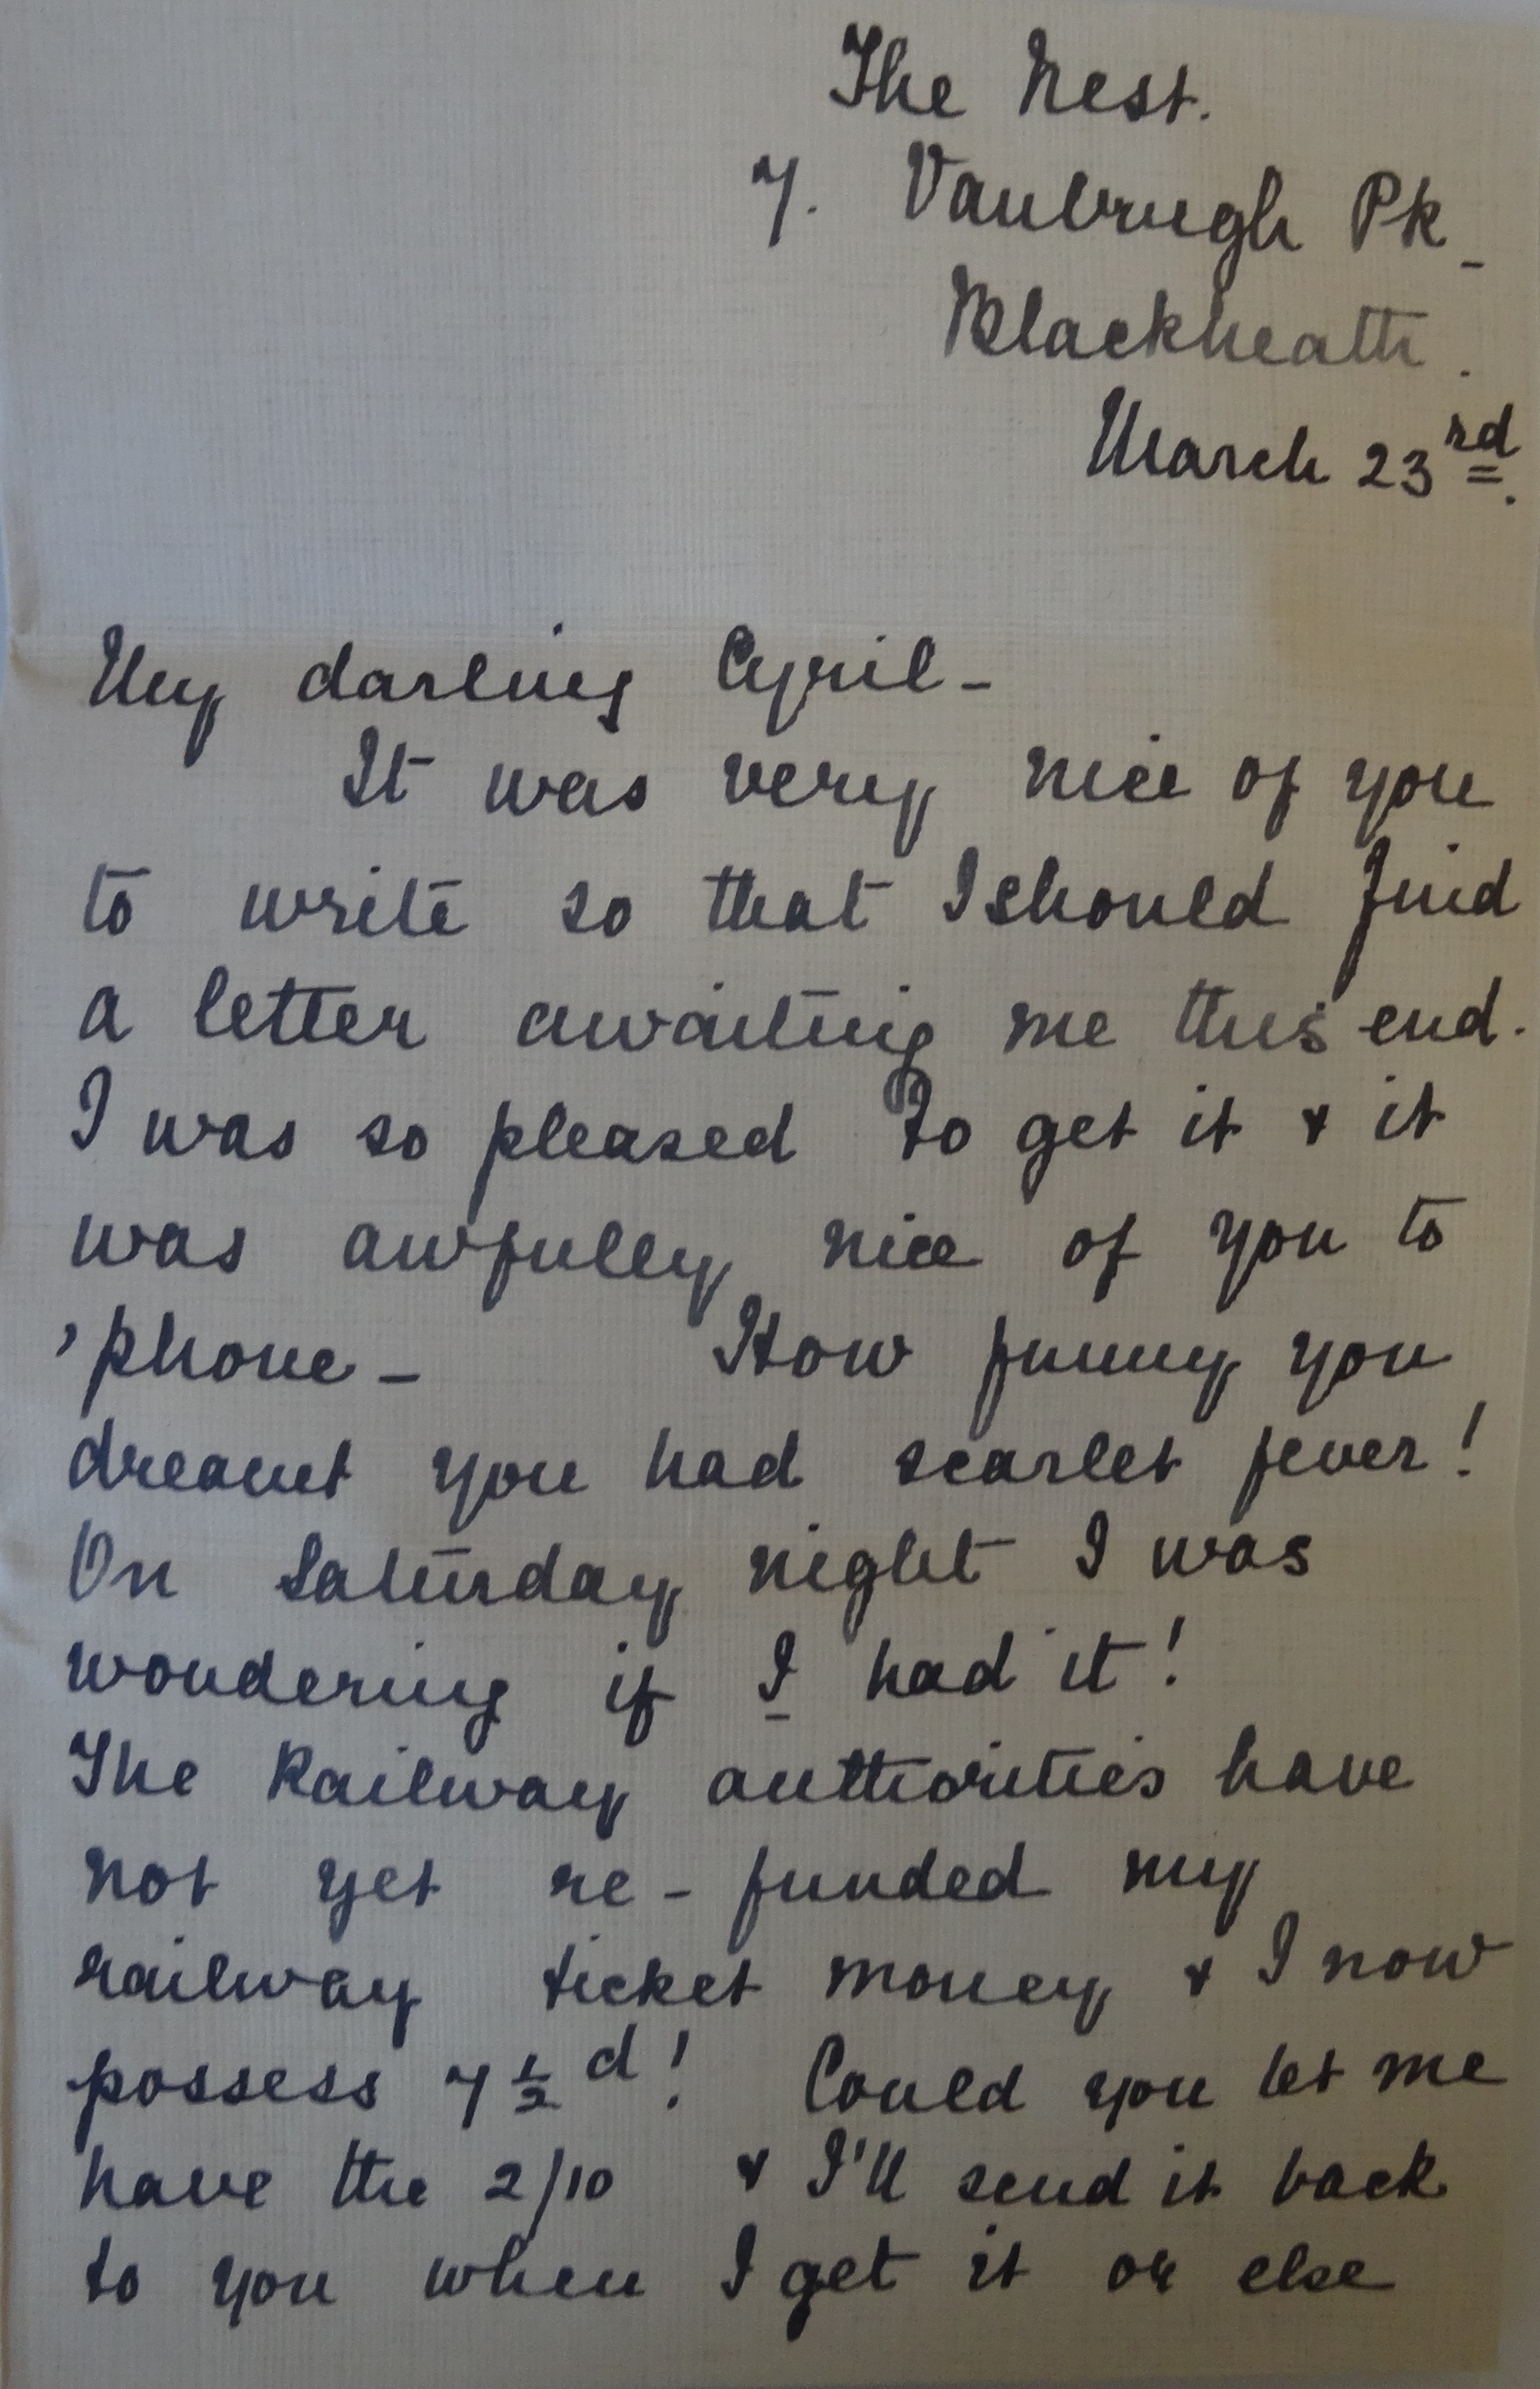 The Nest.
7. Vanbrugh Pk_
Blackheath.
March 23rd.
My darling Cyril-
It was very nice of you
to write so that I should find
a letter awaiting me this end.
I was so pleased to get it & it
was awfully nice of you to
'phone- How funny you
dreamt you had scarlet fever!
On Saturday night I was
wondering if I had it!
The Railway authorities have
not yet re-funded my
railway ticket money & I now
possess 7½d! Could you let me
have the 2/10 & I'll send it back
to you when I get it or else